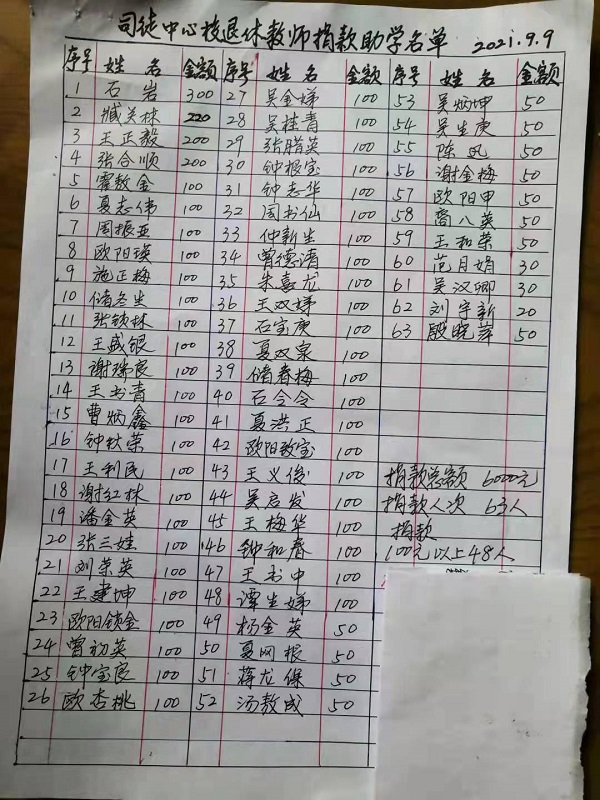 司徒中心校退休教师捐款助学名单 2021.9.9
序号 姓名 金额 序号 姓名 金额 序号 姓名 金额
1 石岩 300 27 吴金娣 100 53 吴炳坤 50
2 臧关林 220 28 吴桂青 100 54 吴生庚 50
3 王正毅 200 29 张腊英 100 55 陈凤 50
4 张合顺 200 30 钟根宝 100 56 谢金梅 50
5 霍敖金 100 31 钟志华 100 57 欧阳甲 50
6 夏志伟 100 32 周书仙 100 58 裔八英 50
7 周振亚 100 33 仲新生 100 59 王和荣 50
8 欧阳瑛 100 34 曾德清 100 60 范月娟 30
9 施正梅 100 35 朱喜龙 100 61 吴汉卿 30
10 储冬生 100 36 王双娣 100 62 刘宇新 20
11 张锁林 100 37 石宝庚 100 63 殷晓萍 50
12 王盛银 100 38 夏双泉 100
13 谢瑞良 100 39 储春梅 100
14 王书青 100 40 石令令 100
15 曹炳鑫 100 41 夏洪正 100
16 钟秋荣 100 42 欧阳敖宝 100
17 王利民 100 43 王义俊 100 捐款总额 6000元
18 谢红林 100 44 吴启发 100 捐款人次 63人
19 潘金英 100 45 王梅华 100 捐款
20 张三娃 100 46 钟和春 100 100元以上48人
21 刘荣英 100 47 王书中 100
22 王建坤 100 48 谭生娣 100
23 欧阳锁金 100 49 杨金英 50
24 曾初英 100 50 夏网根 50
25 钟宝良 100 51 蒋龙保 50
26 欧杏桃 100 52 汤敖成 50